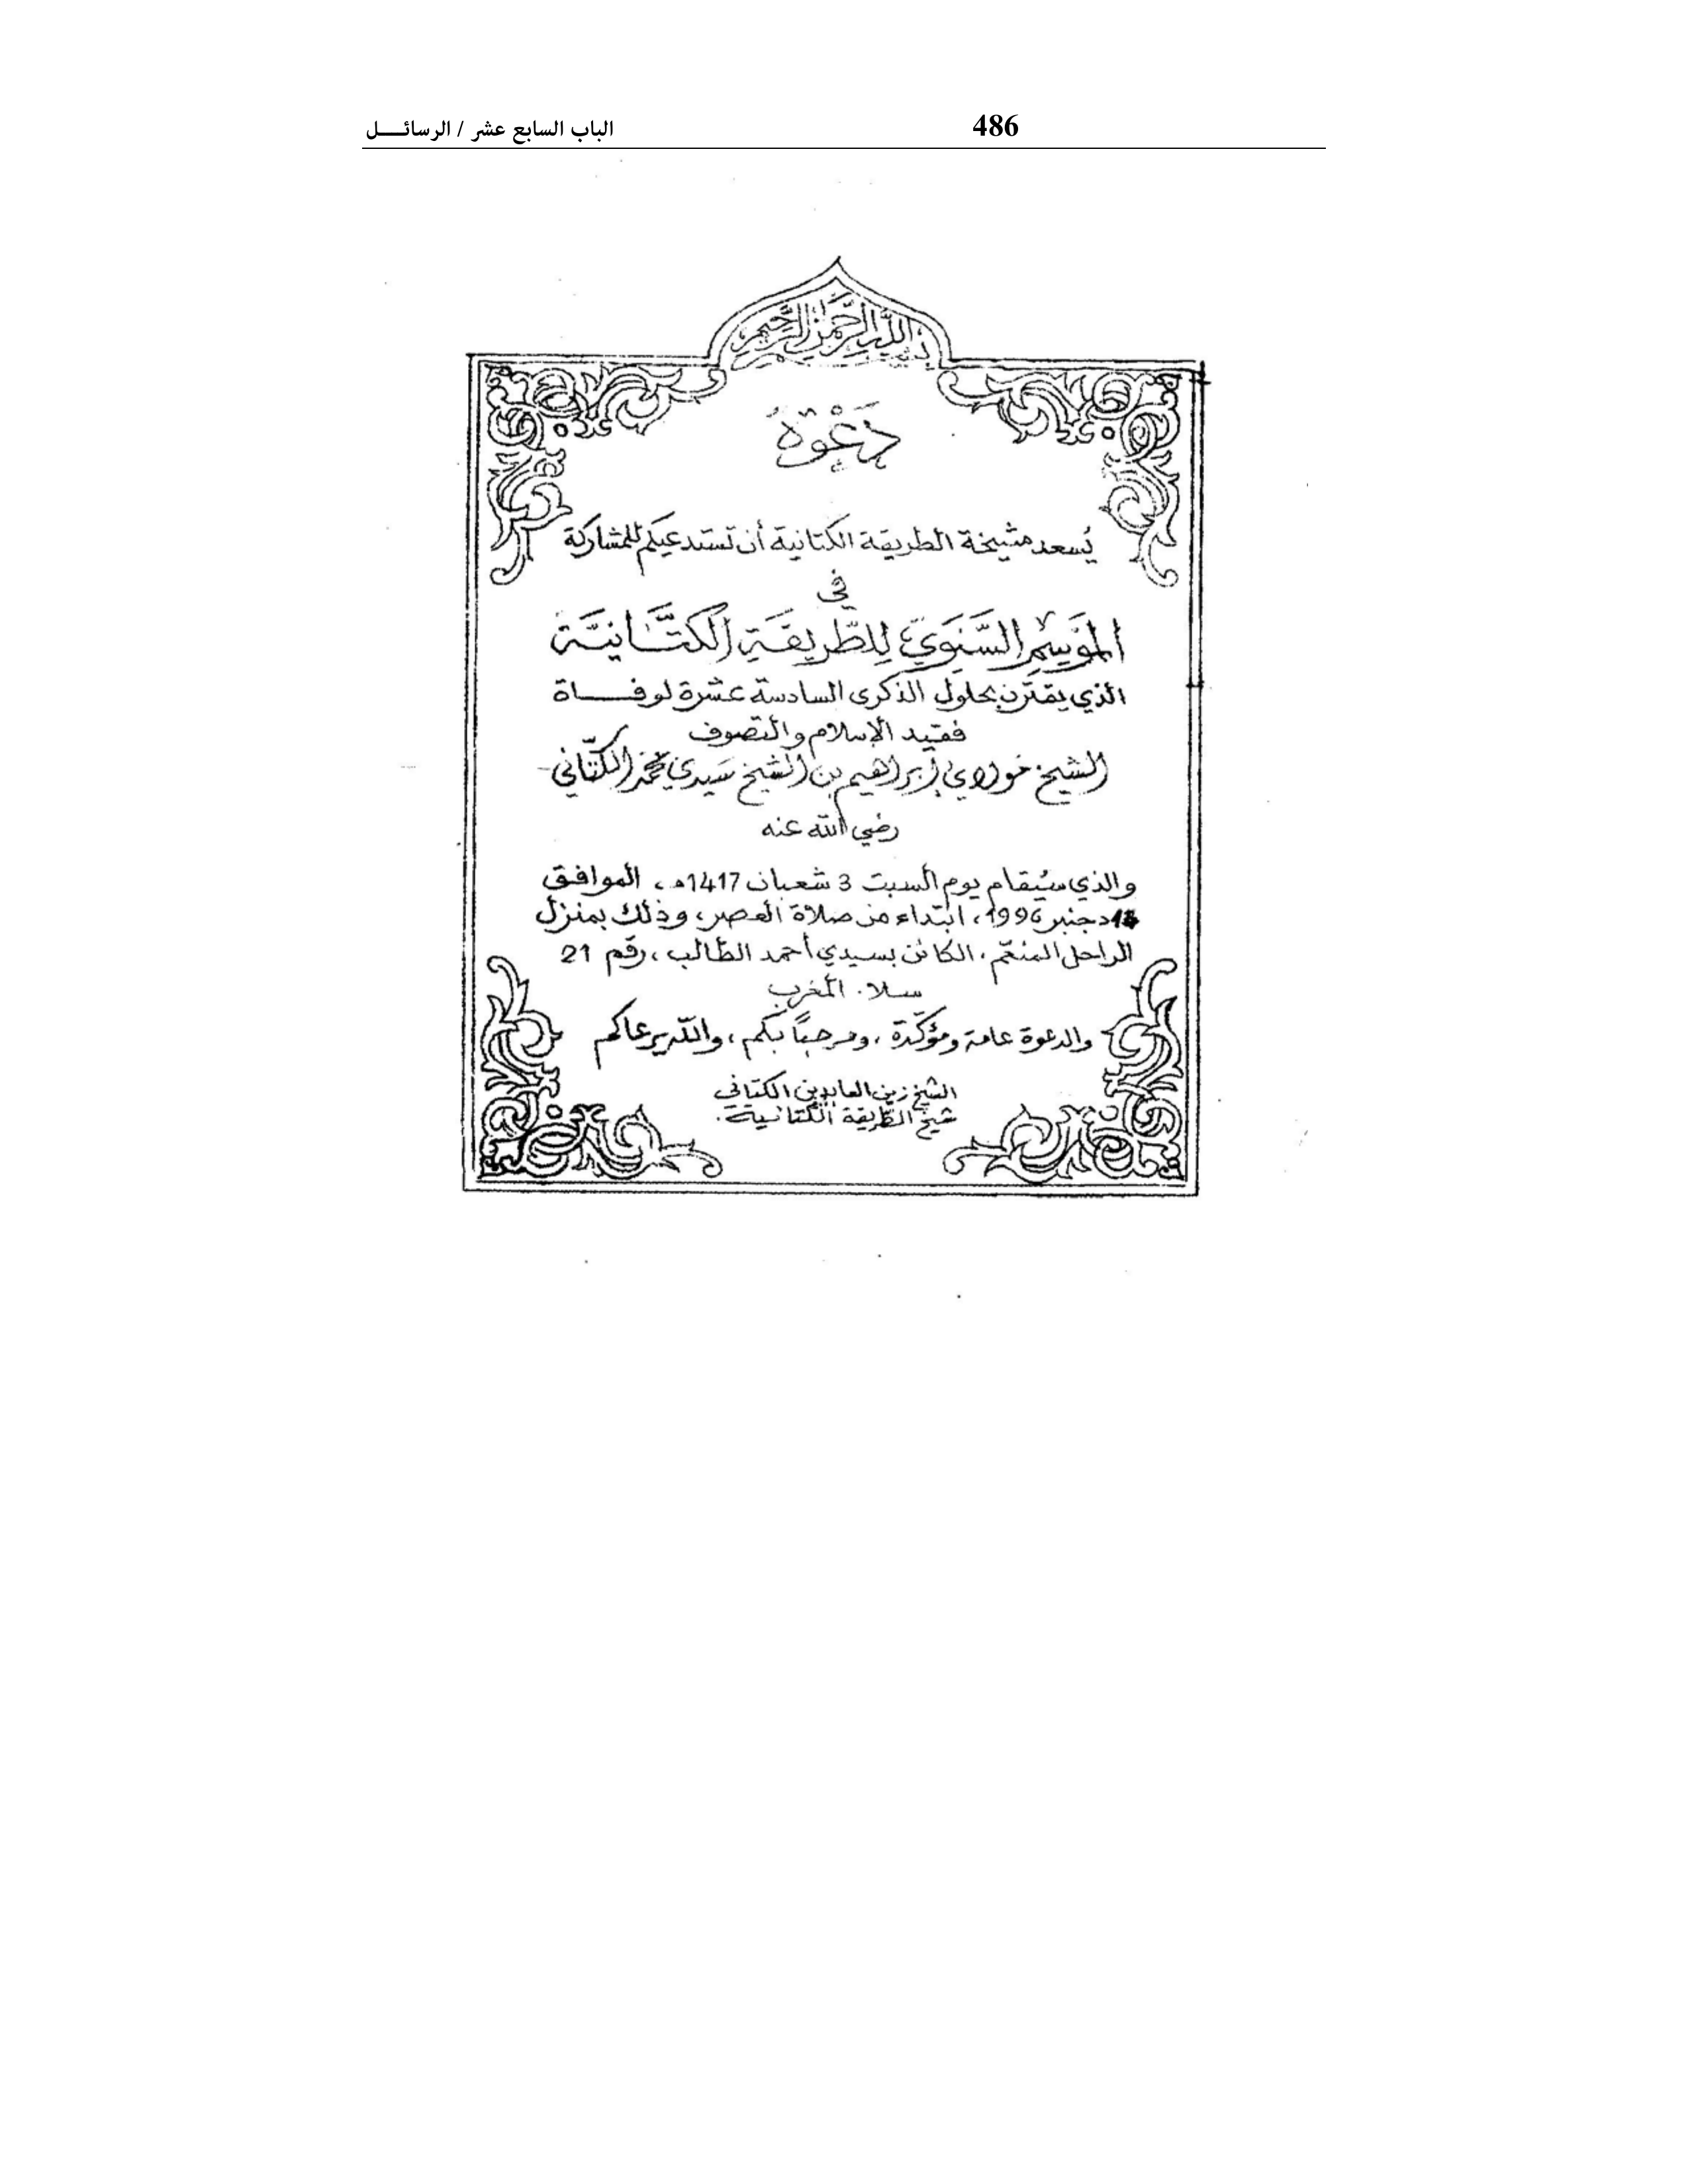 الباب السابع عشر / الرسائـــل 486
بسم الله الرحمن الرحيم
دَعْوَةٌ
يُسعد مشيخة الطريقة الكتانية أن تستدعيكم للمشاركة
في
المَوسِمِ السَّنَوِيِّ لِلطَّرِيقَةِ الكَتَّانِيَّة
الذي يقترن بحلول الذكرى السادسة عشرة لوفـــاة
فقيد الإسلام والتصوف
الشيخ مولاي إبراهيم بن الشيخ سيدي محمد الكتّاني
رضي الله عنه
والذي سيُقام يوم السبت 3 شعبان 1417هـ، الموافق
دجنبر 1996، ابتداء من صلاة العصر، وذلك بمنزل
الراحل المنعّم، الكائن بسيدي أحمد الطالب، رقم 21
سلا. المغرب
والدعوة عامة ومؤكّدة، ومرحبًا بكم، والله يرعاكم
الشيخ زين العابدين الكتاني
شيخ الطريقة الكتانية.